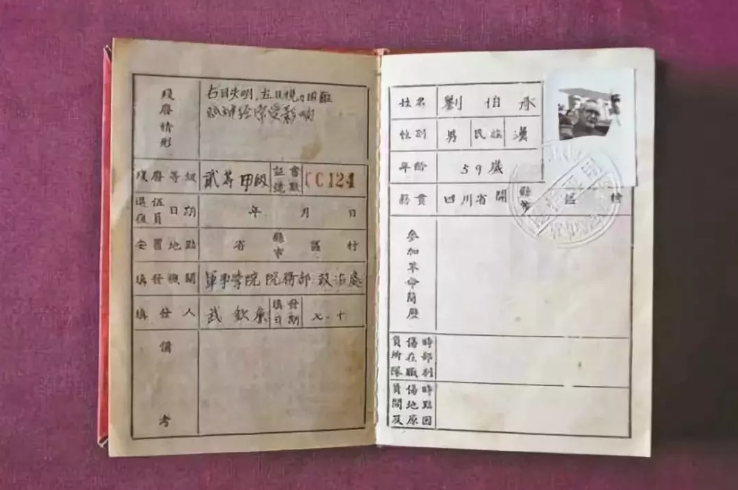 殘廢情形
右目失明,左目視力困難
殘廢等級 貳等甲級 証書號數 CC124
退伍復員日期 年 月 日
安置地點 省 縣市 區 村
填發機關 軍事學院院務部政治處
填發人 武 欽 填發日期 七·十
備考
姓名 劉伯承
性別 男 民族 漢
年齡 59歲
籍貫 四川省開縣 區 村
參加革命簡歷
負傷時所在部隊職別
負傷時間地點及原因